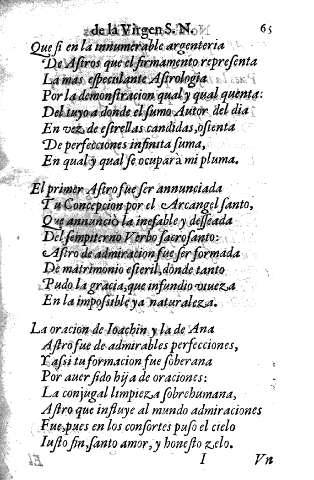 de la Virgen S. N. 65
Que si en la innumerable argenteria
De Astros que el firmamento representa
La mas especulante Astrologia
Por la demonstracion qual y qual quenta:
Del tuyo a donde el sumo Autor del dia
En vez de estrellas candidas, ostenta
De perfecciones infinita suma,
En qual y qual se ocuparà mi pluma.
El primer Astro fue ser annunciada
Tu Concepcion por el Arcangel santo,
Que annunciò la inefable y desseada
Del sempiterno Verbo sacrosanto:
Astro de admiracion fue ser formada
De matrimonio esteril, donde tanto
Pudo la gracia, que infundio viueza
En la impossible ya naturaleza.
La oracion de Ioachin y la de Ana
Astro fue de admirables perfecciones,
Y assi tu formacion fue soberana
Por auer sido hija de oraciones:
La conjugal limpieza sobrehumana,
Astro que influye al mundo admiraciones
Fue, pues en los consortes puso el cielo
Iusto fin, santo amor, y honesto zelo.
I Vn